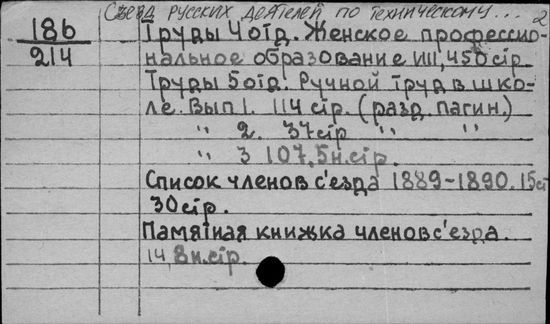 Съезд русских деятелей по техническому... 2
186
214
Труды 4 отд. Женское профессио-
нальное образование VIII, 450 стр
Труды 5 отд. Ручной труд в шко-
ле. Вып 1. 114 стр. (разд. пагин.)
" 2. 37 стр " "
" 3 107, 5 н. стр.
Список членов с'езда 1889-1890. 15 ст
30 стр.
Памятная книжка членов с'езда.
14, 8 н. стр.